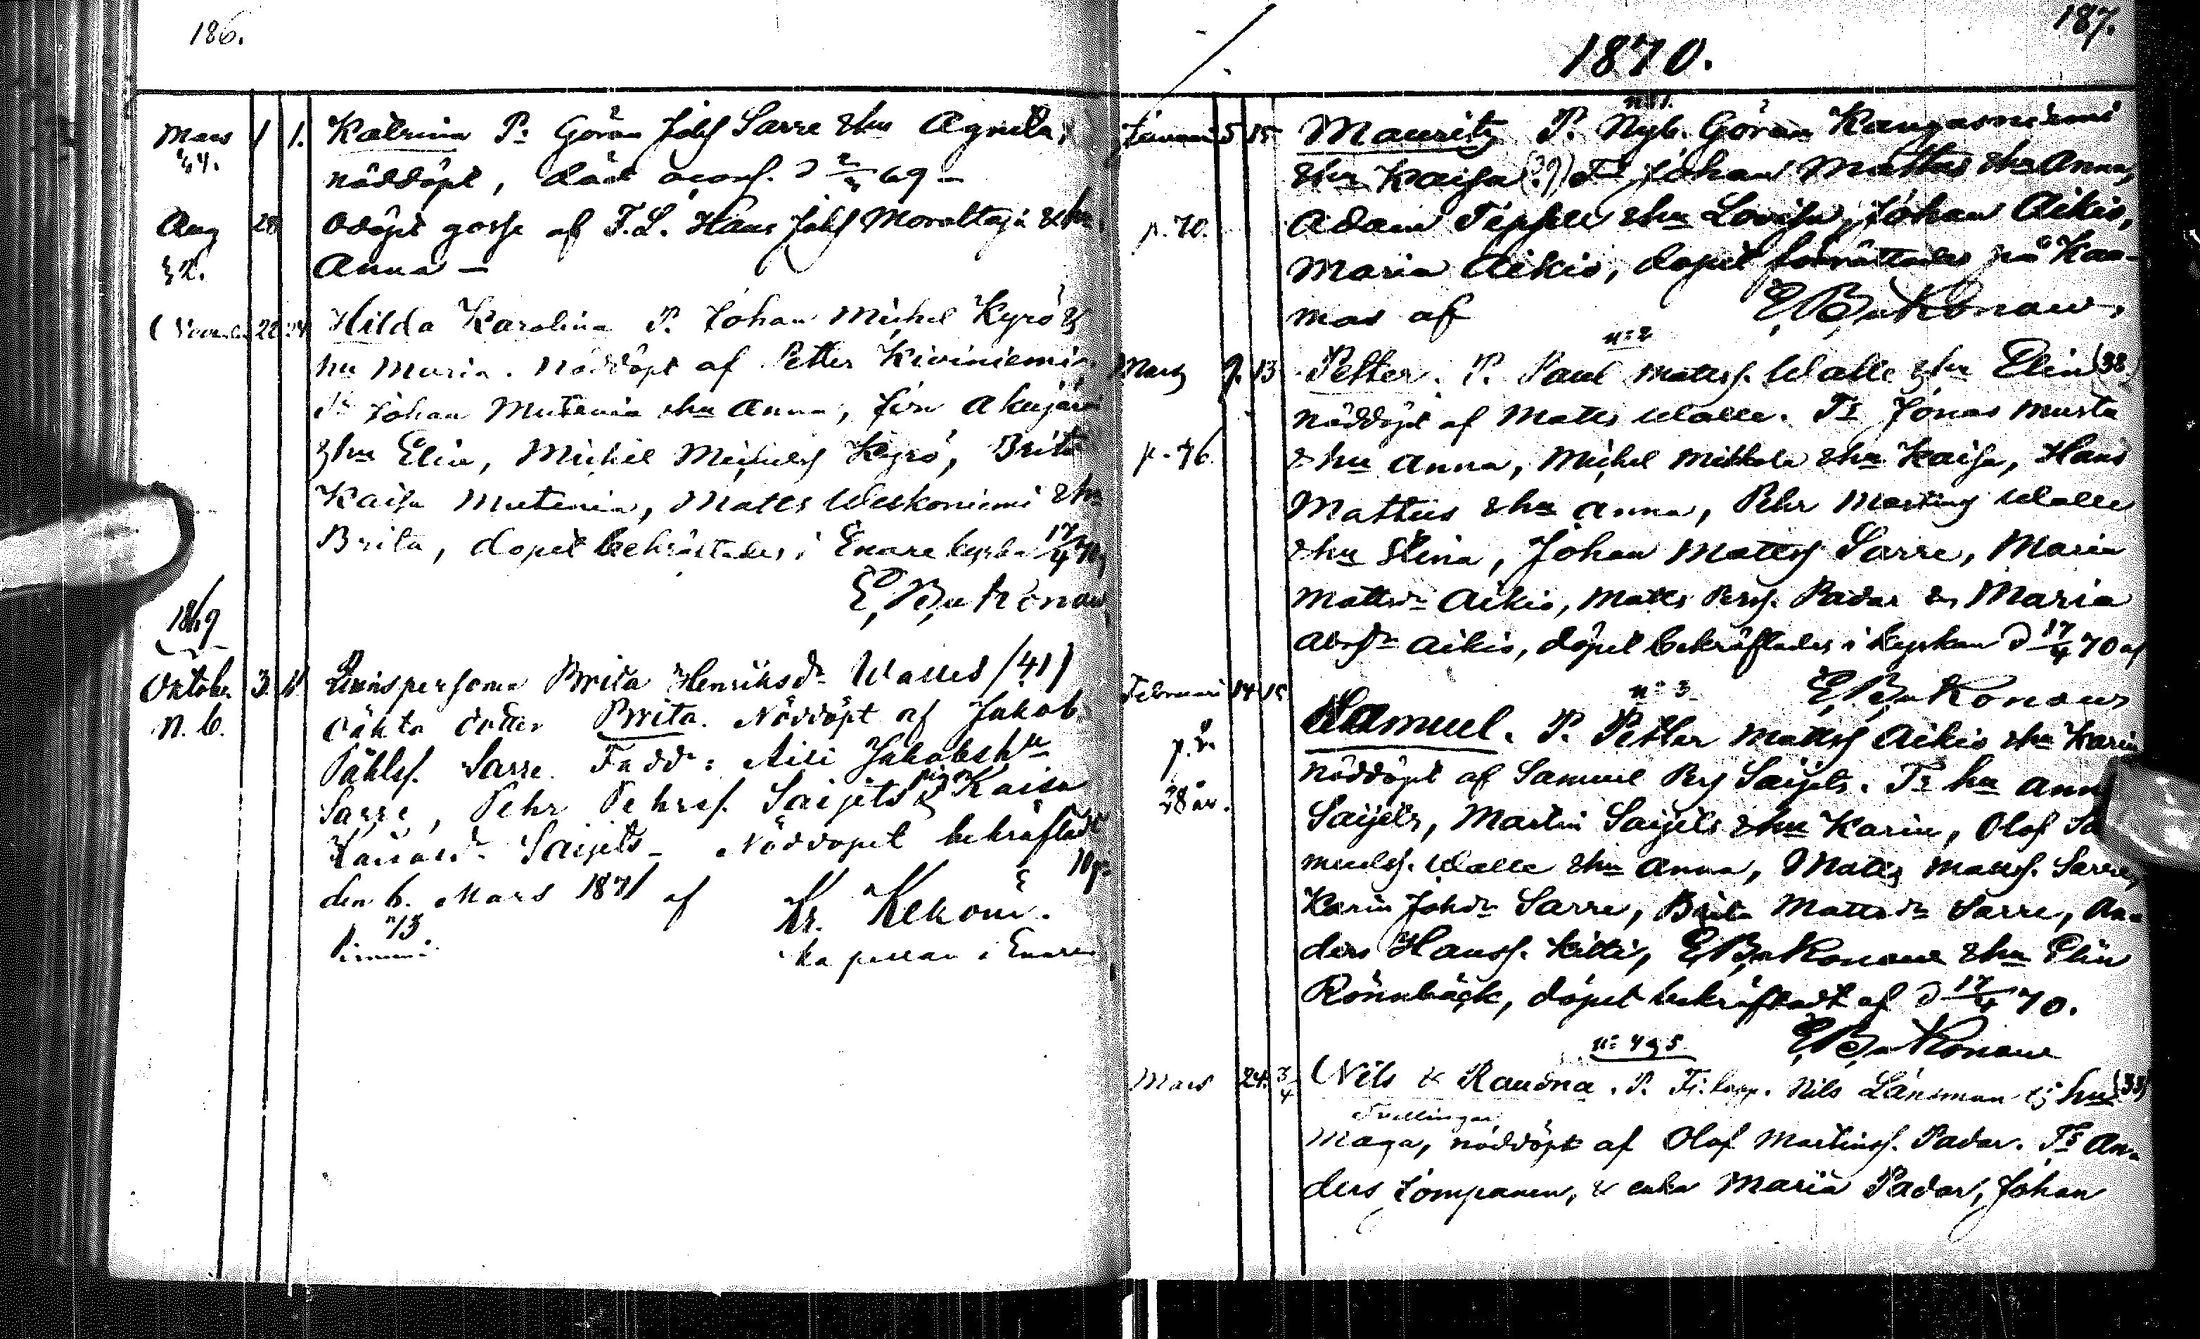 186.
Mars 1 1. Katrina P: Göran Johs Sarre & hu Agneta,
44. nöddöpt, död 69 –
Aug 28 Odöpt gosse af F.L. Hans Johs Morottaja & hu
32. Anna –
22 24 Hilda Karolina P. Johan Michel Kyrö &
hu Maria. Nöddöpt af Petter Kiviniemi,
Johan Mutenia & hu Anna, Akujärvi
& hu Elin, Michel Michels Kyrö, Brita
Kaisa Mutenia, Matts Weskoniemi & hu
Brita, döpet bekräftades i Enare kyrka 17/4 70,
E, B, v Konow
1869
Oktober 3. Qvinspersonen Brita Henriksdr Walles (41)
n. 6. oäkta dotter Brita. Nöddöpt af Jakob
Påhlss. Sarre. Fadd: Aili Jakobs hu
Sarre, Pehr Pehrss. Saijets & pig. Kaisa
Saijets – Nöddöpet bekräftadt
den 6. Mars 1871 af Kr. Kekoni.
n 13 kapellan i Enare
187.
1870.
n: 1.
Januari 5 15 Mauritz P. Nyb. Göran Kangasniemi
& hu Kaisa (39) Fr Johan Mattus & hu Anna,
p. 70. Adam Teppu & hu Lovisa, Johan Aikio,
Maria Aikio, döpet förrättades på Kaa-
mas af E, B, v Konow.
n: 2
Mars 9. 13 Petter. P. Paul Mattss. Walle & hu Elin (38)
nöddöpt af Matts Walle. Fr Jonas Musta
p. 46. & hu Anna, Michel Mikkola & hu Kaisa, Hans
Mattus & hu Anna, Pehr Martins Walle
& hu Stina, Johan Mattss Sarre, Maria
Mattsdr Aikio, Matts Perss. Padar & Maria
Aikio, döpet bekräftades i kyrkan d 17/4 70 af
n: 3 E, B, v Konow
Februari 14 15 Samuel. P. Petter Mattss Aikio & hu Karin
nöddöpt af Samuel Pers Saijets. Fr hu Anna
28 år. Saijets, Martin Saijets & hu Karin, Olof Sa
muelss. Walle & hu Anna, Matts Mattss. Sarre,
Karin Johdr Sarre, Brita Mattsdr Sarre, An-
ders Hanss. Kitti, E, B, v Konow & hu Elin
Rönnbäck, döpet bekräftadt af d 17/4 70.
n: 4 & 5 E, B, v Konow
Mars 24. 3/4 Nils & Raudna. P. Fi. lapp. Nils Länsman & hu (33)
Tvillingar
Maga, nöddöpt af Olof Martinss. Padar. Fr An-
ders Jompanen, & enka Maria Padar, Johan